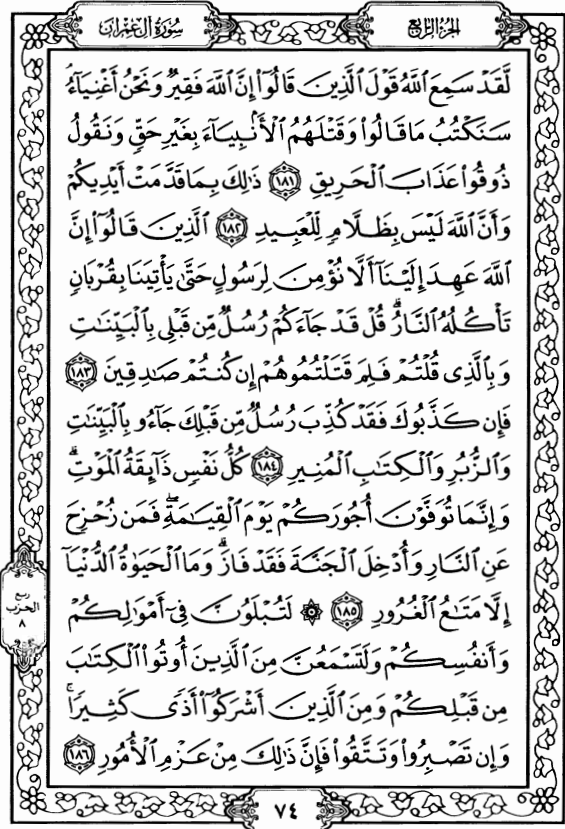 الجزء الرابع
سورة آل عمران
لَّقَدْ سَمِعَ اللَّهُ قَوْلَ الَّذِينَ قَالُوٓا۟ إِنَّ اللَّهَ فَقِيرٌ وَنَحْنُ أَغْنِيَآءُ
سَنَكْتُبُ مَا قَالُوا۟ وَقَتْلَهُمُ الْأَنۢبِيَآءَ بِغَيْرِ حَقٍّ وَنَقُولُ
ذُوقُوا۟ عَذَابَ الْحَرِيقِ ١٨١ ذَٰلِكَ بِمَا قَدَّمَتْ أَيْدِيكُمْ
وَأَنَّ اللَّهَ لَيْسَ بِظَلَّامٍ لِّلْعَبِيدِ ١٨٢ الَّذِينَ قَالُوٓا۟ إِنَّ
اللَّهَ عَهِدَ إِلَيْنَآ أَلَّا نُؤْمِنَ لِرَسُولٍ حَتَّىٰ يَأْتِيَنَا بِقُرْبَانٍ
تَأْكُلُهُ النَّارُ ۗ قُلْ قَدْ جَآءَكُمْ رُسُلٌ مِّن قَبْلِى بِالْبَيِّنَٰتِ
وَبِالَّذِى قُلْتُمْ فَلِمَ قَتَلْتُمُوهُمْ إِن كُنتُمْ صَٰدِقِينَ ١٨٣
فَإِن كَذَّبُوكَ فَقَدْ كُذِّبَ رُسُلٌ مِّن قَبْلِكَ جَآءُو بِالْبَيِّنَٰتِ
وَالزُّبُرِ وَالْكِتَٰبِ الْمُنِيرِ ١٨٤ كُلُّ نَفْسٍ ذَآئِقَةُ الْمَوْتِ ۗ
وَإِنَّمَا تُوَفَّوْنَ أُجُورَكُمْ يَوْمَ الْقِيَٰمَةِ ۖ فَمَن زُحْزِحَ
عَنِ النَّارِ وَأُدْخِلَ الْجَنَّةَ فَقَدْ فَازَ ۗ وَمَا الْحَيَوٰةُ الدُّنْيَآ
إِلَّا مَتَٰعُ الْغُرُورِ ١٨٥ ۞ لَتُبْلَوُنَّ فِىٓ أَمْوَٰلِكُمْ
وَأَنفُسِكُمْ وَلَتَسْمَعُنَّ مِنَ الَّذِينَ أُوتُوا۟ الْكِتَٰبَ
مِن قَبْلِكُمْ وَمِنَ الَّذِينَ أَشْرَكُوٓا۟ أَذًى كَثِيرًا ۚ
وَإِن تَصْبِرُوا۟ وَتَتَّقُوا۟ فَإِنَّ ذَٰلِكَ مِنْ عَزْمِ الْأُمُورِ ١٨٦
ربع
الحزب
٨
٧٤